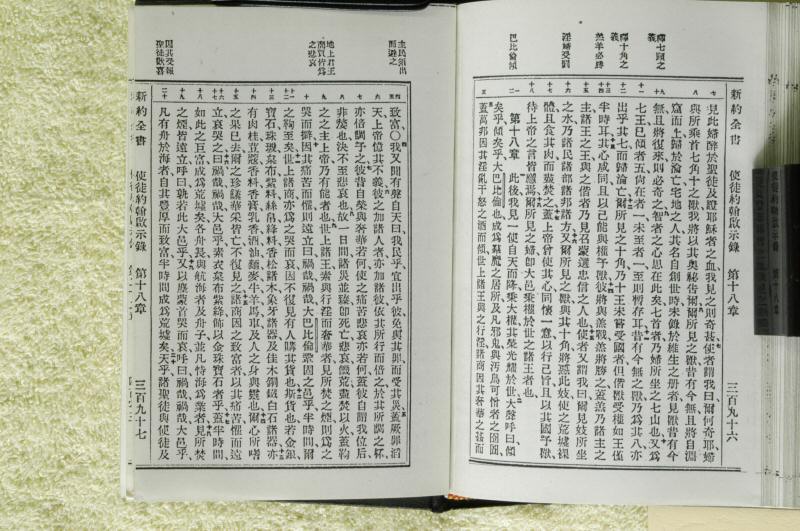 新約全書 使徒約翰啟示錄 第十八章 三百九十六
釋七頭之義
釋十角之義
羔羊必勝
淫婦受罰
巴比倫傾
見此婦醉於聖徒及證耶穌者之血我見之則奇甚使者謂我曰爾何奇耶婦
與所乘首七角十之獸我將以其奧秘告爾爾所見之獸昔有今無且將自淵
窟而上歸於淪亡宅地之人其名自創世時未錄於維生之冊者見獸昔有今
無且將復來則必奇之智者之心思在此矣七首者乃婦所坐之七山也又為
七王已傾者五尚在者一未至者一至則暫存耳昔有今無之獸乃為其八亦
出乎其七而歸淪亡爾所見之十角乃十王未嘗受國者但偕獸受權如王僅
半時耳其心咸同且以己能與權予獸彼將與羔戰羔將勝之蓋羔乃諸主之
主諸王之王與之偕者乃見召蒙選忠信之人也使者又謂我曰爾見妓所坐
之水乃諸民諸群諸邦諸方又爾所見之獸與其十角將惡此妓使之荒墟裸
體且食其肉而焚之蓋上帝曾使其心同懷一意以行己旨且以其國予獸
待上帝之言皆應焉爾所見之婦即大邑秉權於世之諸王者也
第十八章 此後我見一使自天而降秉大權其榮光耀於世大聲呼曰傾
乎傾矣乎大巴比倫也成為羣魔之居所及凡邪鬼與污鳥可憎者之囹圄
蓋萬邦因其淫亂干怒之酒而傾世上諸王與之行淫諸商因其奢華之甚而
新約全書 使徒約翰啟示錄 第十八章 三百九十七
主民須出而避之
地上君王商賈皆為之悲哀
因其受報聖徒歡喜
致富〇我又聞有聲自天曰我民乎宜出乎彼免與其罪而受其災蓋厥罪滔
天上帝憶其不義彼之加諸人者亦加諸彼依其所行而倍之於其所調之杯
亦倍調予之彼昔自榮與奢華若何使之痛苦悲哀亦若何蓋彼自謂我位后
非嫠也決不至悲哀也故一日間諸災並臻即死亡悲哀饑荒盡焚以火蓋鞫
之之主上帝乃有能者也世上諸王素與行淫而奢華者見所焚之煙則為之
哭而擗因其痛苦而懼則遠立曰禍哉禍哉大巴比倫鞏固之邑乎半時間爾
之鞫至矣世上諸商亦為之哭而哀因不復見有人購其貨也斯貨也若金銀
寶石珠璣枲布紫料絲帛絳料香松諸木象牙諸器及佳木銅鐵白石諸器亦
有肉桂荳蔻香料香膏乳香酒油麵麥牛羊馬車及人之身與靈也爾心所嗜
之果已去爾之珍饈華采皆亡不復見之諸商因之致富者以其痛苦懼而遠
立哀哭之曰禍哉禍哉大邑乎素衣枲布紫絳飾以金珠寶石者乎蓋半時間
如此之巨富成為荒墟矣各舟長與航海者及舟子並凡恃海為業者見所焚
之煙皆遠立呼曰孰若此大邑乎又以塵蒙首哭而哀呼曰禍哉禍哉大邑乎
凡有舟於海者自其豐厚而致富半時間成為荒墟矣天乎諸聖徒與使徒及